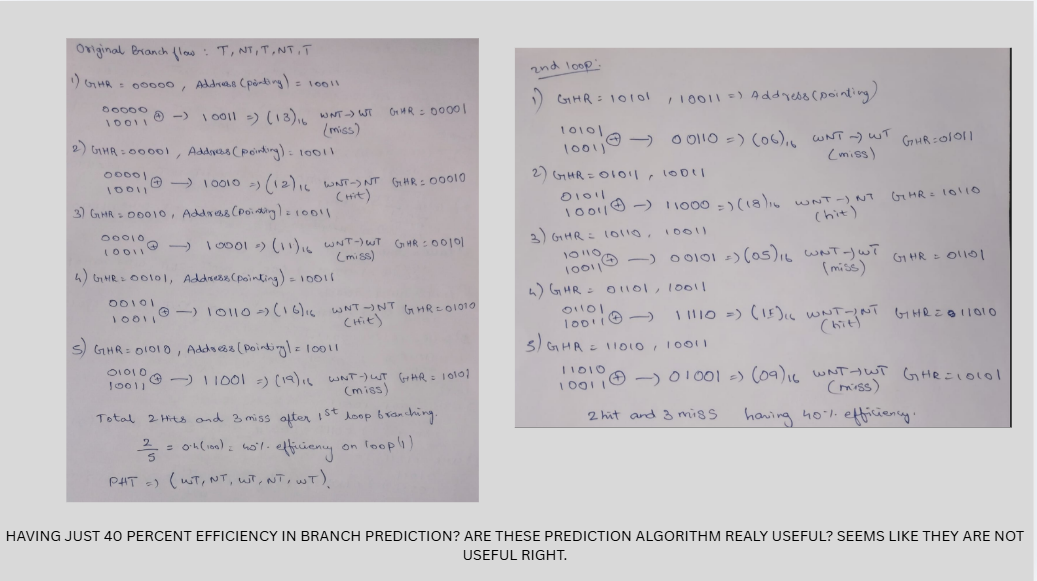 Original Branch flow : T, NT, T, NT, T
1) GHR = 00000 , Address(pointing) = 10011
00000
10011 ⊕ → 10011 => (13)16 WNT → WT GHR = 00001
(miss)
2) GHR = 00001 , Address(pointing) = 10011
00001
10011 ⊕ → 10010 => (12)16 WNT → NT GHR = 00010
(Hit)
3) GHR = 00010, Address(pointing) = 10011
00010
10011 ⊕ → 10001 => (11)16 WNT → WT GHR = 00101
(miss)
4) GHR = 00101, Address(pointing) = 10011
00101
10011 ⊕ → 10110 => (16)16 WNT → NT GHR = 01010
(Hit)
5) GHR = 01010 , Address(pointing) = 10011
01010
10011 ⊕ → 11001 => (19)16 WNT → WT GHR = 10101
(miss)
Total 2 Hits and 3 miss after 1st loop branching.
2/5 = 0.4(100) = 40% efficiency on loop(1)
PHT => (WT, NT, WT, NT, WT).
2nd loop:
1) GHR = 10101 , 10011 => Address(pointing)
10101
10011 ⊕ → 00110 => (06)16 WNT → WT GHR = 01011
(miss)
2) GHR = 01011 , 10011
01011
10011 ⊕ → 11000 => (18)16 WNT → NT GHR = 10110
(hit)
3) GHR = 10110 , 10011
10110
10011 ⊕ → 00101 => (05)16 WNT → WT GHR = 01101
(miss)
4) GHR = 01101 , 10011
01101
10011 ⊕ → 11110 => (1E)16 WNT → NT GHR = 11010
(hit)
5) GHR = 11010 , 10011
11010
10011 ⊕ → 01001 => (09)16 WNT → WT GHR = 10101
(miss)
2 hit and 3 miss having 40% efficiency.
HAVING JUST 40 PERCENT EFFICIENCY IN BRANCH PREDICTION? ARE THESE PREDICTION ALGORITHM REALY USEFUL? SEEMS LIKE THEY ARE NOT
USEFUL RIGHT.